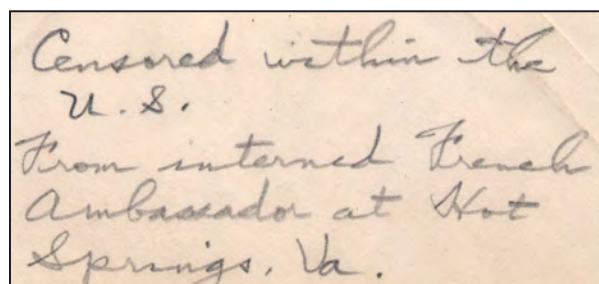 Censored within the
U.S.
From interned French
Ambassador at Hot
Springs, Va.